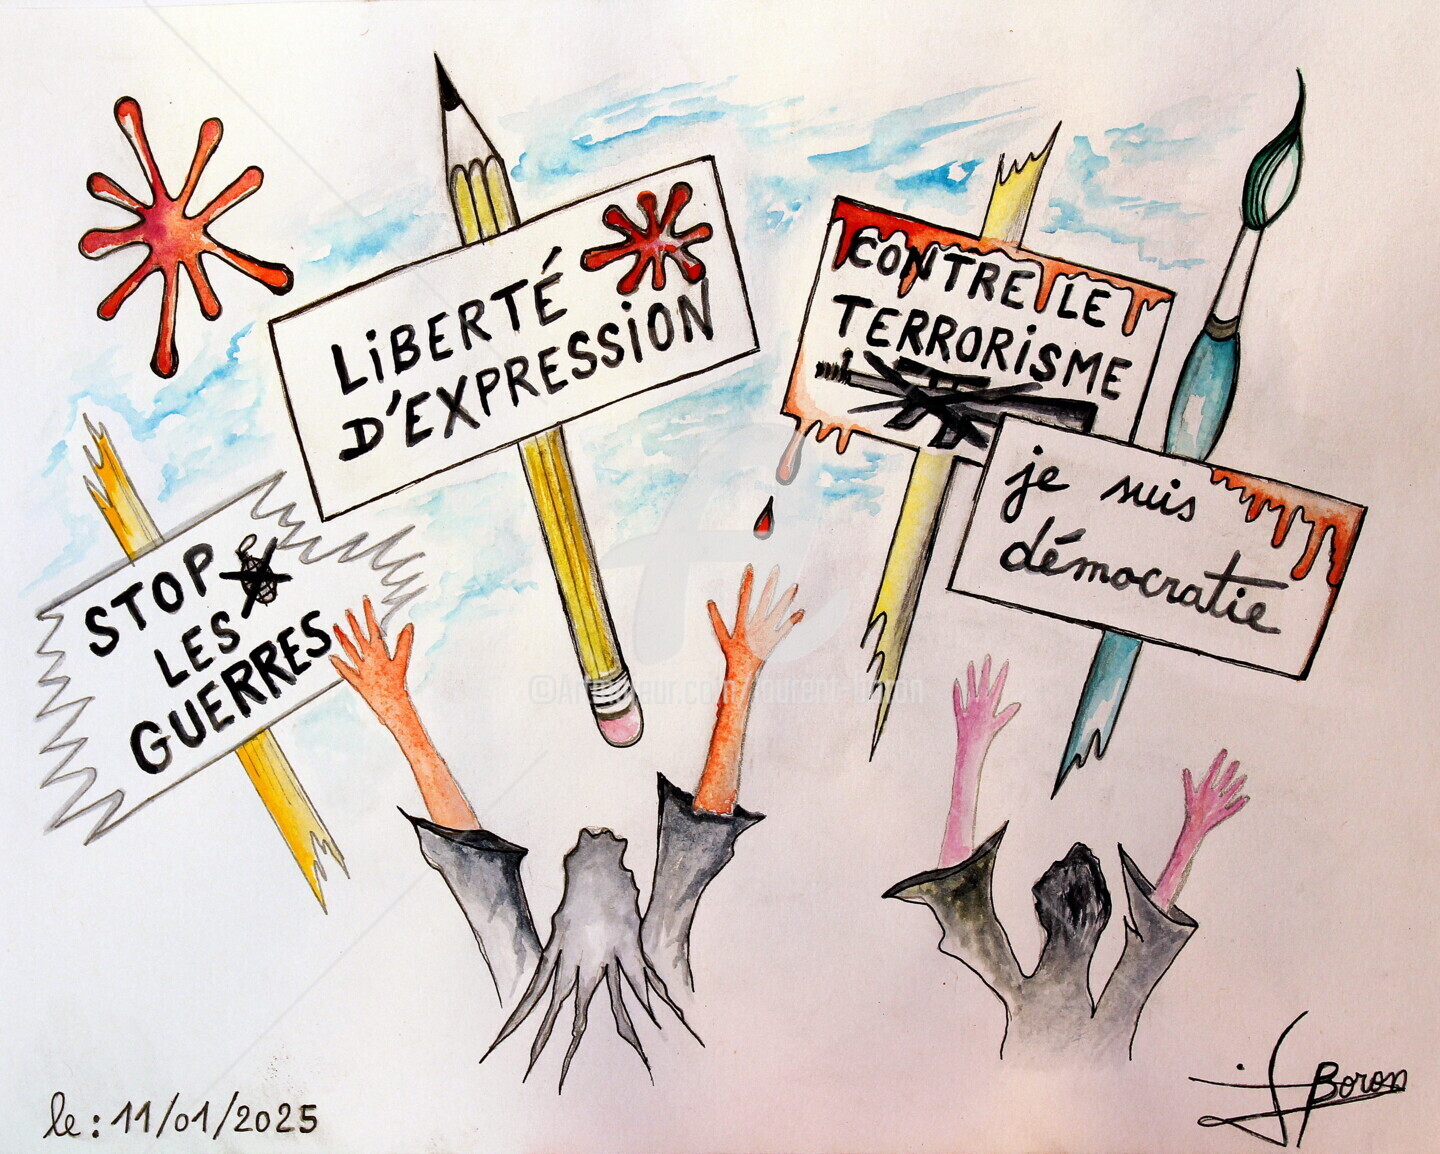 LIBERTÉ
D'EXPRESSION
CONTRE LE
TERRORISME
je suis
démocratie
STOP
LES
GUERRES
le : 11/01/2025
Boron